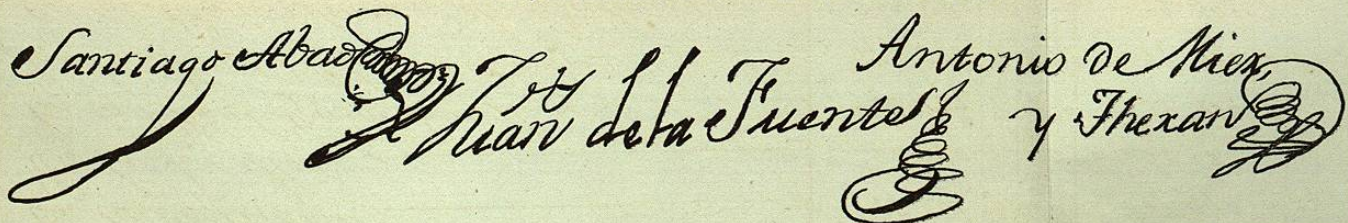 Santiago Abad
Juan de la Fuente
Antonio de Mier,
y Theran